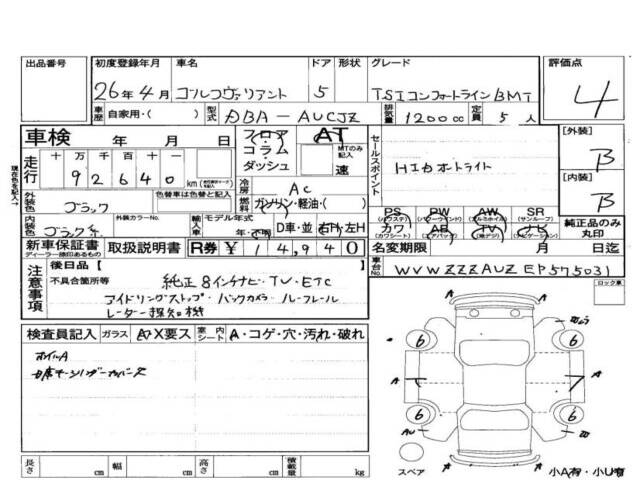 出品番号 初度登録年月 車名 ドア 形状 グレード 評価点
26年4月 ゴルフヴァリアント 5 TSIコンフォートラインBMT 4
車歴 自家用・( ) 型式 DBA-AUCJZ 排気量 1200cc 定員 5人
車検 年 月 日 フロア コラム ダッシュ AT MTのみ記入 速 セールスポイント [外装] B
現在色を記入→ 走行 十 万 千 百 十 一 92640 km
HIDオートライト
冷房 AC [内装] B
外装色 ブラック 色替車は色替と記入 燃料 ガソリン・軽油・( )
PS AW PW SR
内装色 ブラック系 外装カラーNo. 輸入車 モデル年式 年・ D車・並 右H・左H
カワ AB TV ナビ 純正品のみ丸印
(カワシート) (エアバック) (ナビゲーション) (サンルーフ)
新車保証書 取扱説明書 R券 ¥14,940 名変期限 月 日迄
ディーラー捺印あるもの
車台No. WVWZZZAUZEP575031
注意事項 後日品[ ]
不具合箇所等 純正8インチナビ・TV・ETC
アイドリングストップ・バックカメラ・ルーフレール
レーダー探知機
ロック車
検査員記入 ガラス A・X要ス 室内シート A・コゲ・穴・汚れ・破れ
ホイルA
6 6 6 6
A A
AU
スペア 小A有・小U有
長さ cm 幅 cm 高さ cm 積載量 kg